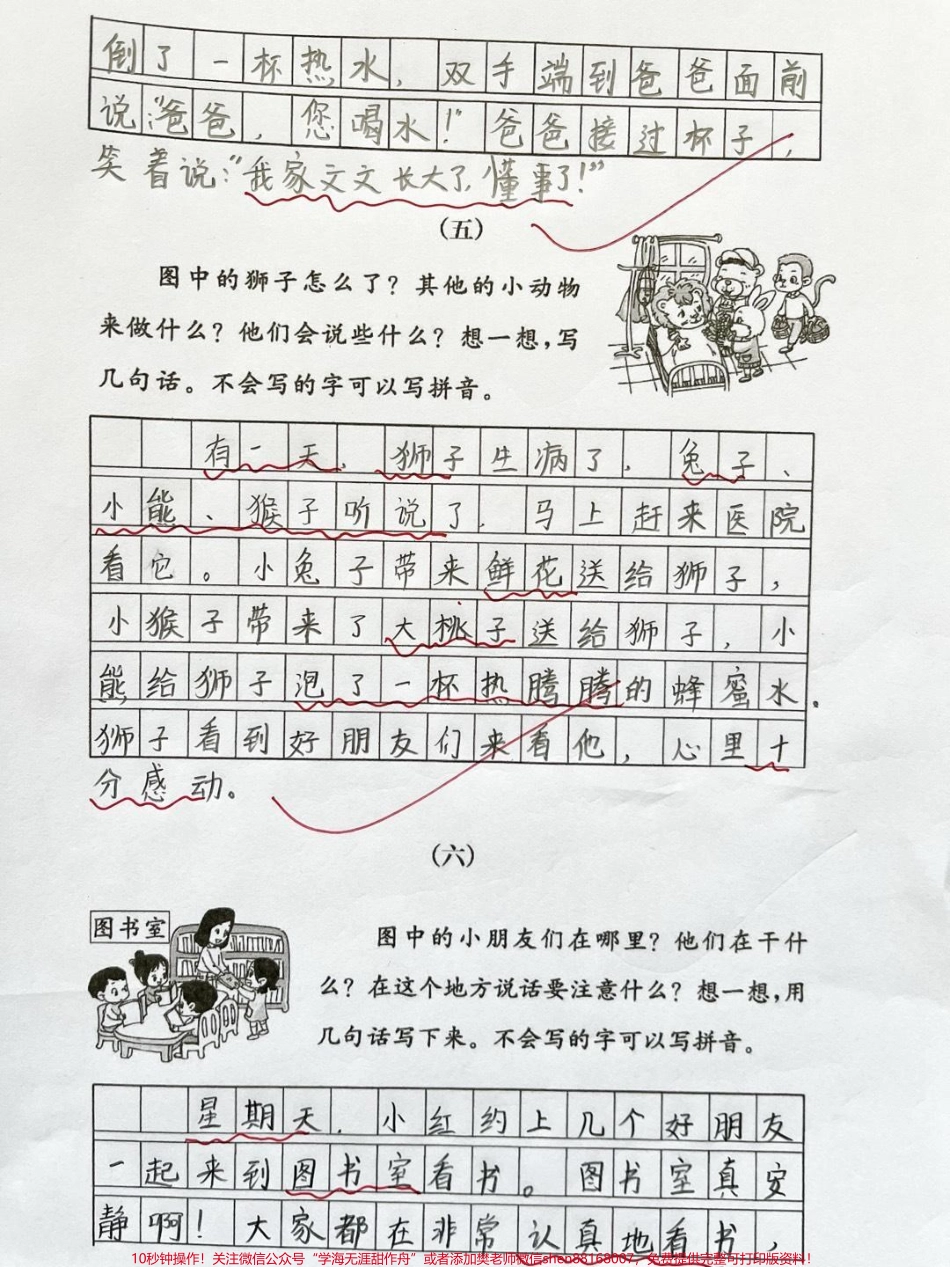 倒了一杯热水，双手端到爸爸面前
说：“爸爸，您喝水！”爸爸接过杯子，
笑着说：“我家文文长大了，懂事了！”
（五）
图中的狮子怎么了？其他的小动物
来做什么？他们会说些什么？想一想，写
几句话。不会写的字可以写拼音。
有一天，狮子生病了，兔子、
小熊、猴子听说了，马上赶来医院
看它。小兔子带来鲜花送给狮子，
小猴子带来了大桃子送给狮子，小
熊给狮子泡了一杯热腾腾的蜂蜜水。
狮子看到好朋友们来看他，心里十
分感动。
（六）
图书室
图中的小朋友们在哪里？他们在干什
么？在这个地方说话要注意什么？想一想，用
几句话写下来。不会写的字可以写拼音。
星期天，小红约上几个好朋友
一起来到图书室看书。图书室真安
静啊！大家都在非常认真地看书，
10秒钟操作！关注微信公众号“学海无涯甜作舟”或者添加樊老师微信shen88168007，免费提供完整可打印版资料！